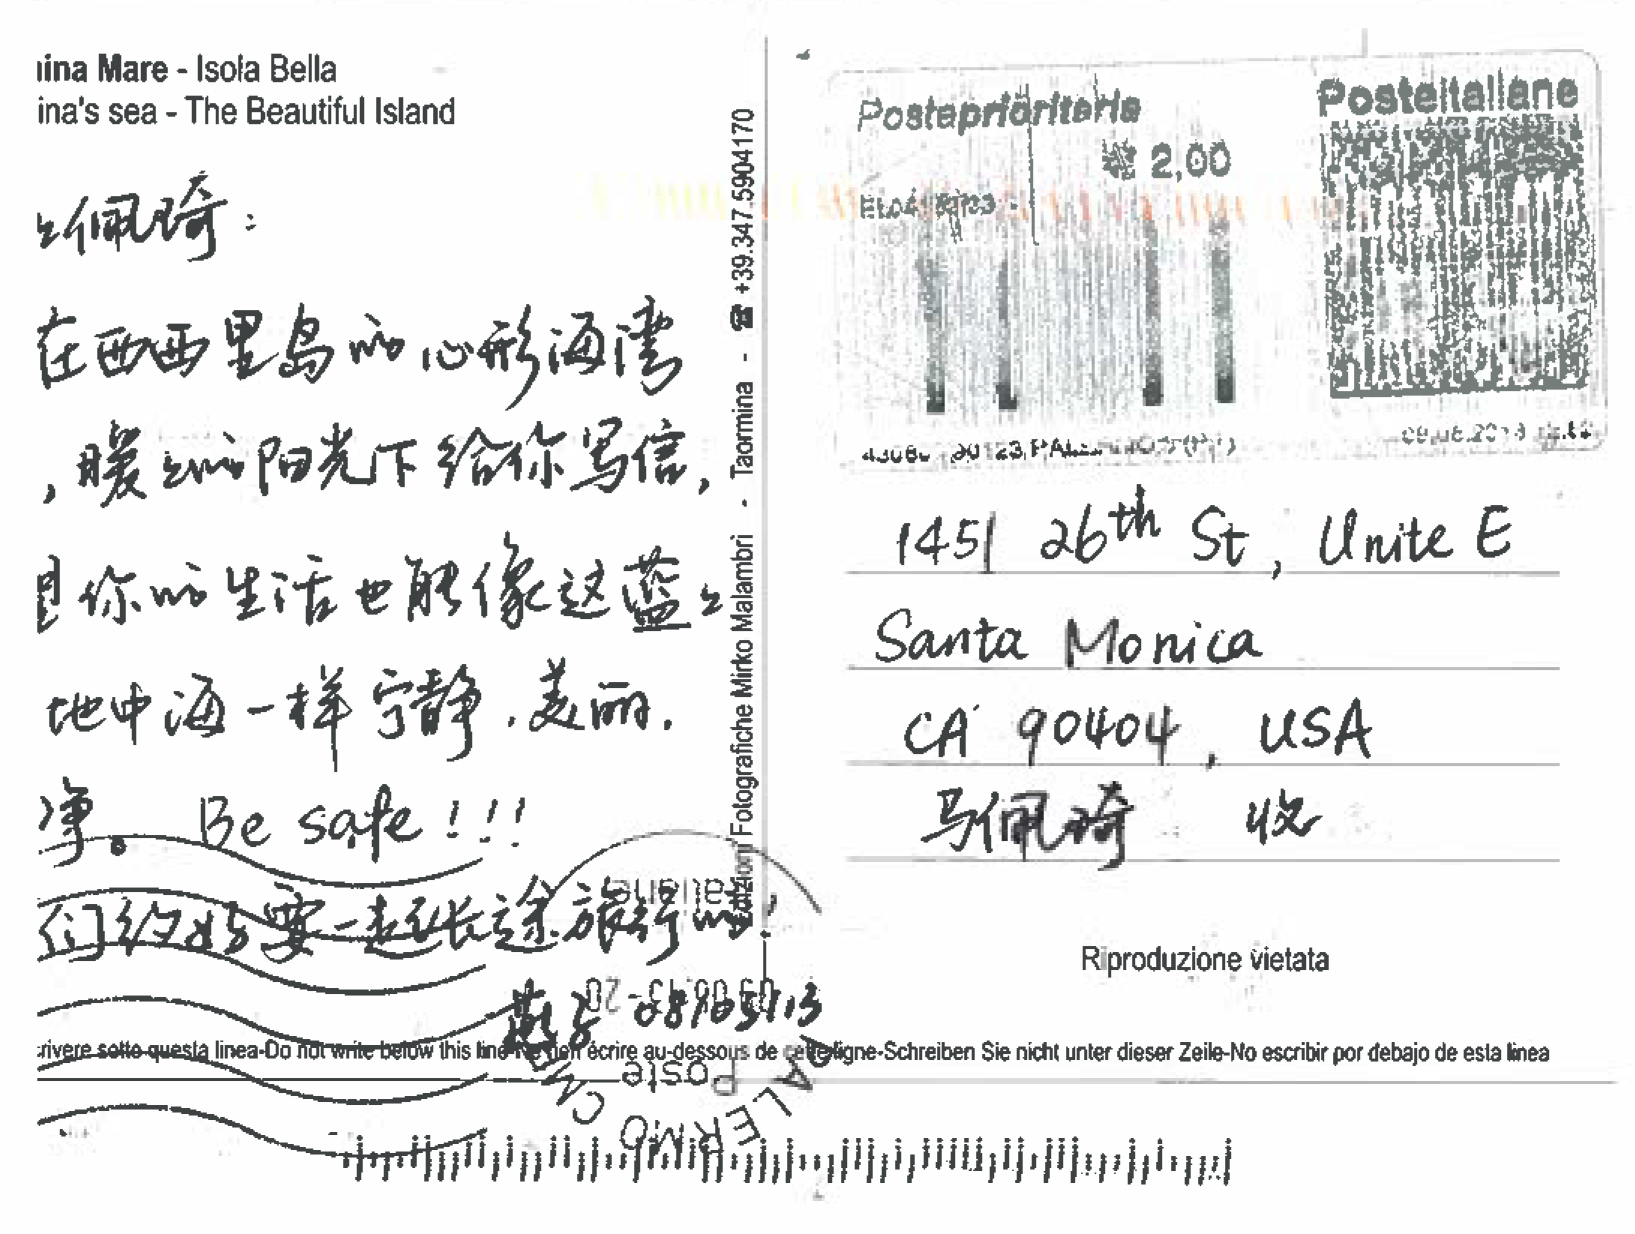 ina Mare - Isola Bella
ina's sea - The Beautiful Island
佩琦：
在西西里岛的心形海湾
，暖々的阳光下给你写信，
你的生活也能像这蓝々
地中海一样宁静，美丽．
净。 Be safe！！！
们约好要一起长途旅行的，
08/05/13
Edizioni Fotografiche Mirko Malambri - Taormina - ☎ +39.347.5904170
Posteprioritaria
Posteitaliane
2,00
1451 26th St, Unite E
Santa Monica
CA 90404, USA
马佩琦 收
Riproduzione vietata
rivere sotto questa linea-Do not write below this line-Ne rien écrire au-dessous de cette ligne-Schreiben Sie nicht unter dieser Zeile-No escribir por debajo de esta linea
Poste
italiane
PALERMO